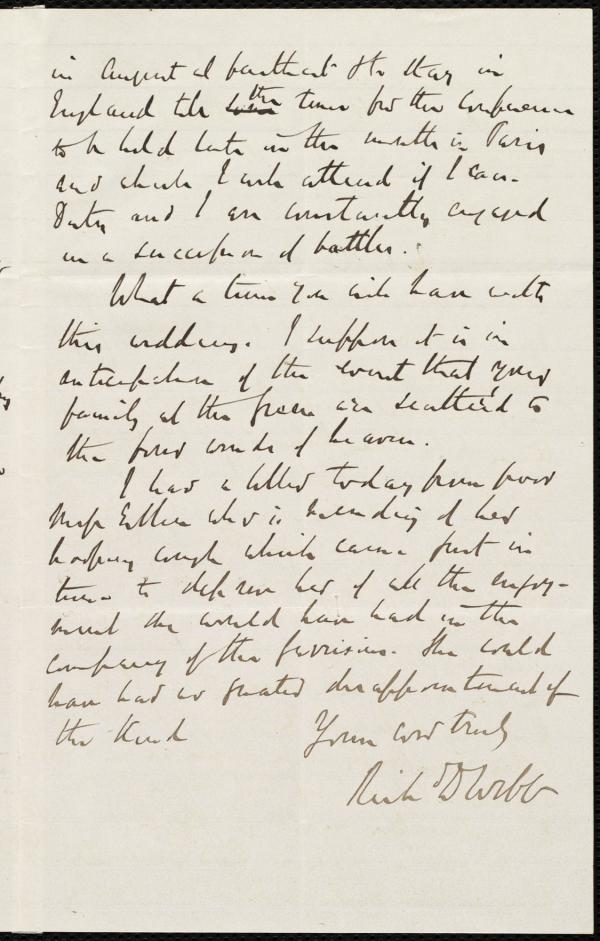 in August at farthest & to stay in
England till the time for the Conference
to be held late in the month in Paris
and which I will attend if I can.
and I are constantly engaged
in a succession of battles.
What a time you will have with
this wedding. I suppose it is in
anticipation of the event that your
family at the are scattered to
the four winds of heaven.
I had a letter today from poor
Miss Estlin who is mending of her
hooping cough which came just in
time to deprive her of all the enjoy-
ment she would have had in the
company of the Garrisons. She could
have had no greater disappointment of
the kind
Yours cord truly
Rich D Webb